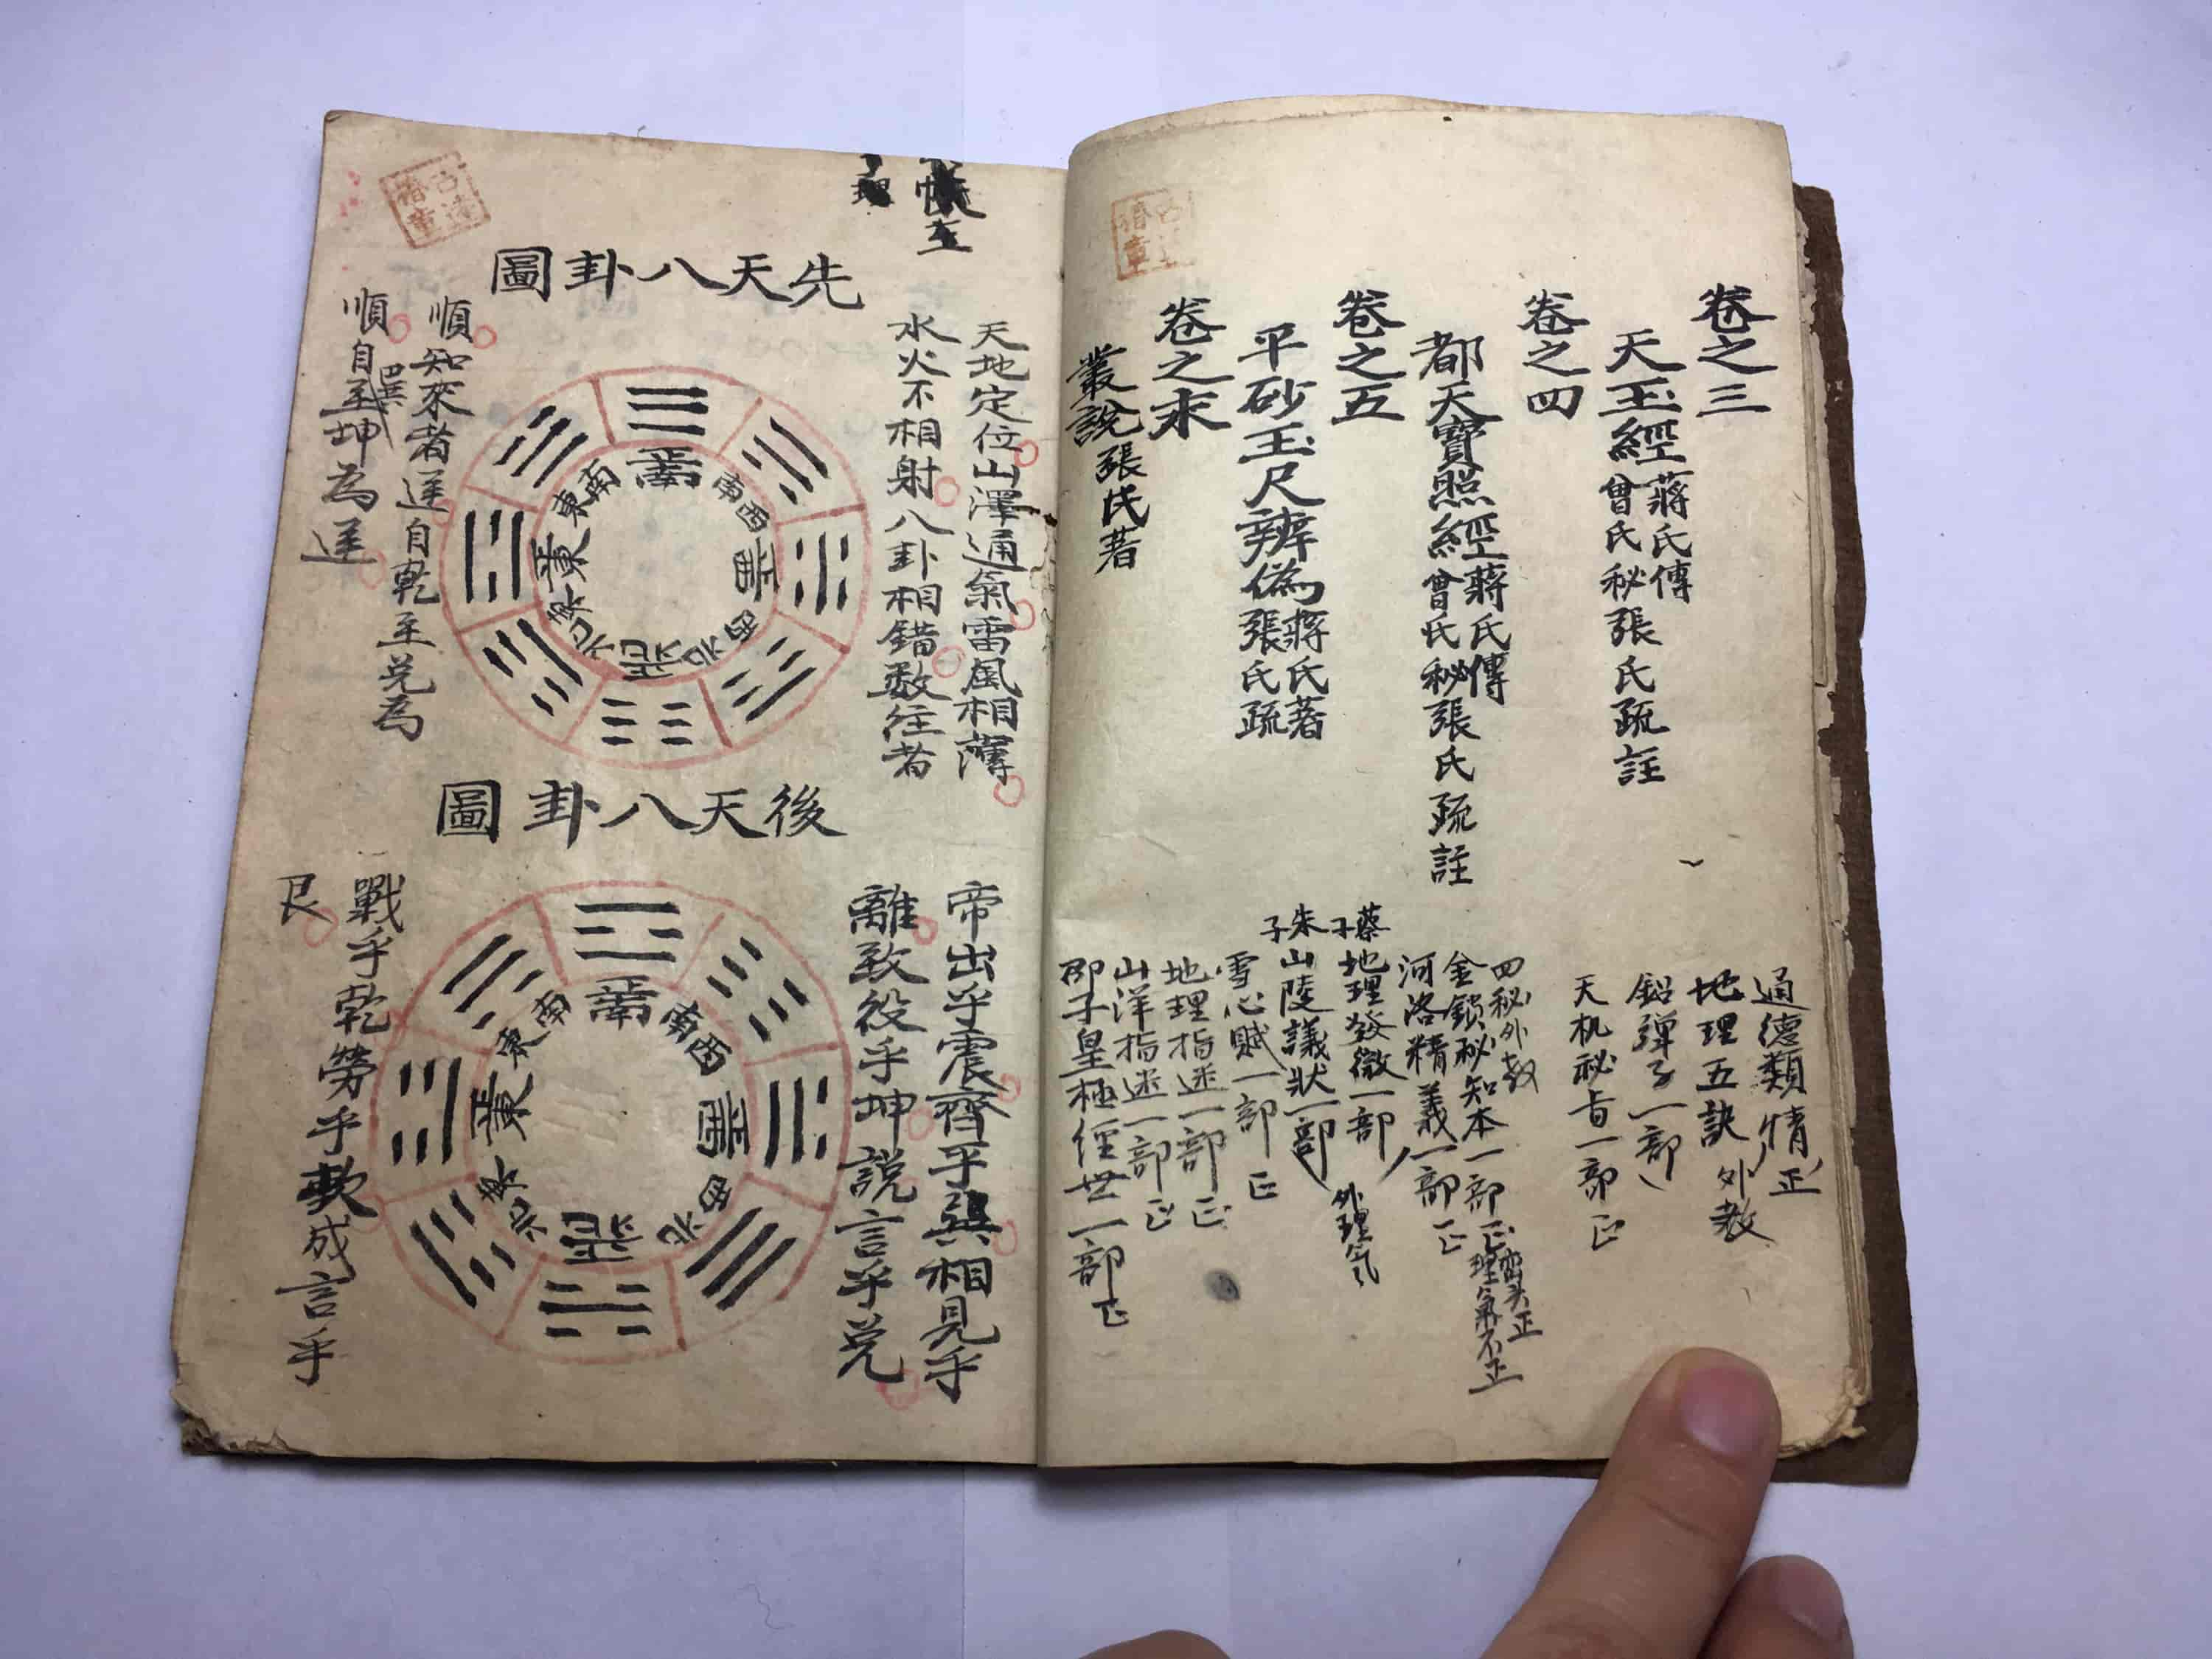 卷之三
天玉經
蔣氏傳
曾氏秘張氏疏註
卷之四
都天寶照經
蔣氏傳
曾氏秘張氏疏註
卷之五
平砂玉尺辨偽
蔣氏著
張氏疏
卷之末
叢說張氏著
通德類情正
地理五訣外教
鉛彈子一部
天机秘旨一部正
四秘外教
金鎖秘知本一部正
巒头正
理氣不正
河洛精義一部正
蔡子
地理發微一部
外理气
朱子
山陵議狀一部
雪心賦一部正
地理指迷一部正
山洋指迷一部正
邵子皇極經世一部正
先天八卦圖
天地定位山澤通氣雷風相薄
水火不相射八卦相錯数往者
順知來者逆自乾至兌為
順自巽至坤為逆
正南
西南
正西
西北
正北
東北
正東
東南
後天八卦圖
帝出乎震齊乎巽相見乎
離致役乎坤說言乎兌
戰乎乾勞乎歎成言乎
艮
正南
西南
正西
西北
正北
東北
正東
東南